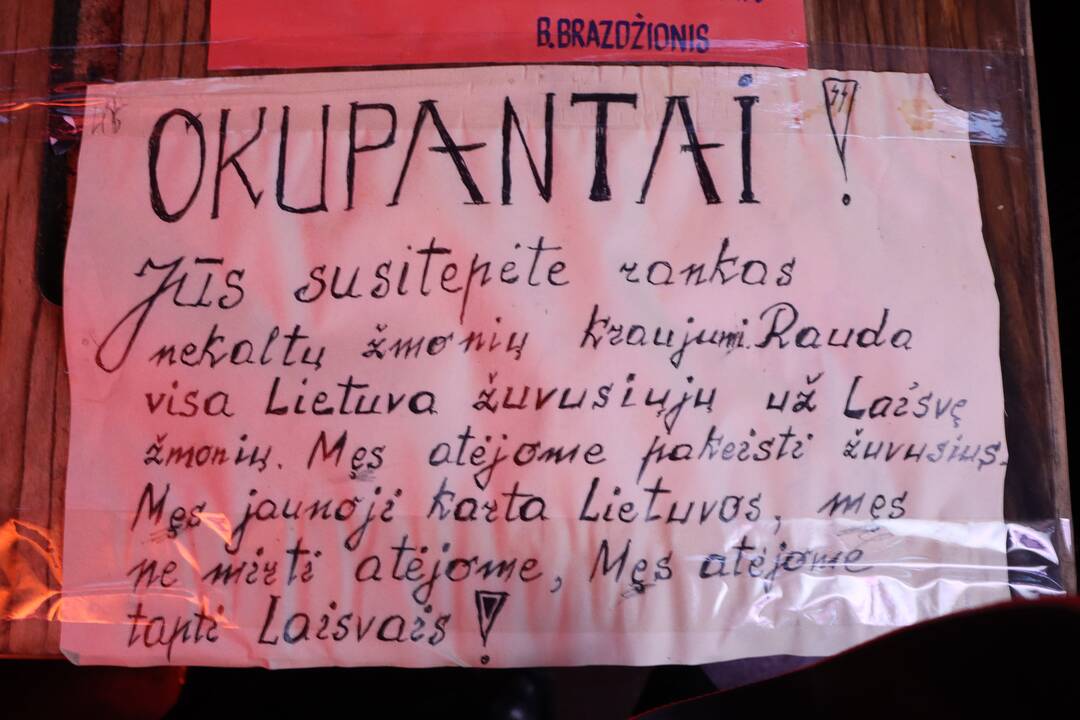 B.BRAZDŽIONIS
OKUPANTAI !
Jūs susitepėte rankas
nekaltų žmonių kraujumi. Rauda
visa Lietuva žuvusiųjų už Laisvę
žmonių. Męs atėjome pakeisti žuvusius.
Męs jaunoji karta Lietuvos, męs
ne mirti atėjome, Męs atėjome
tapti Laisvais !